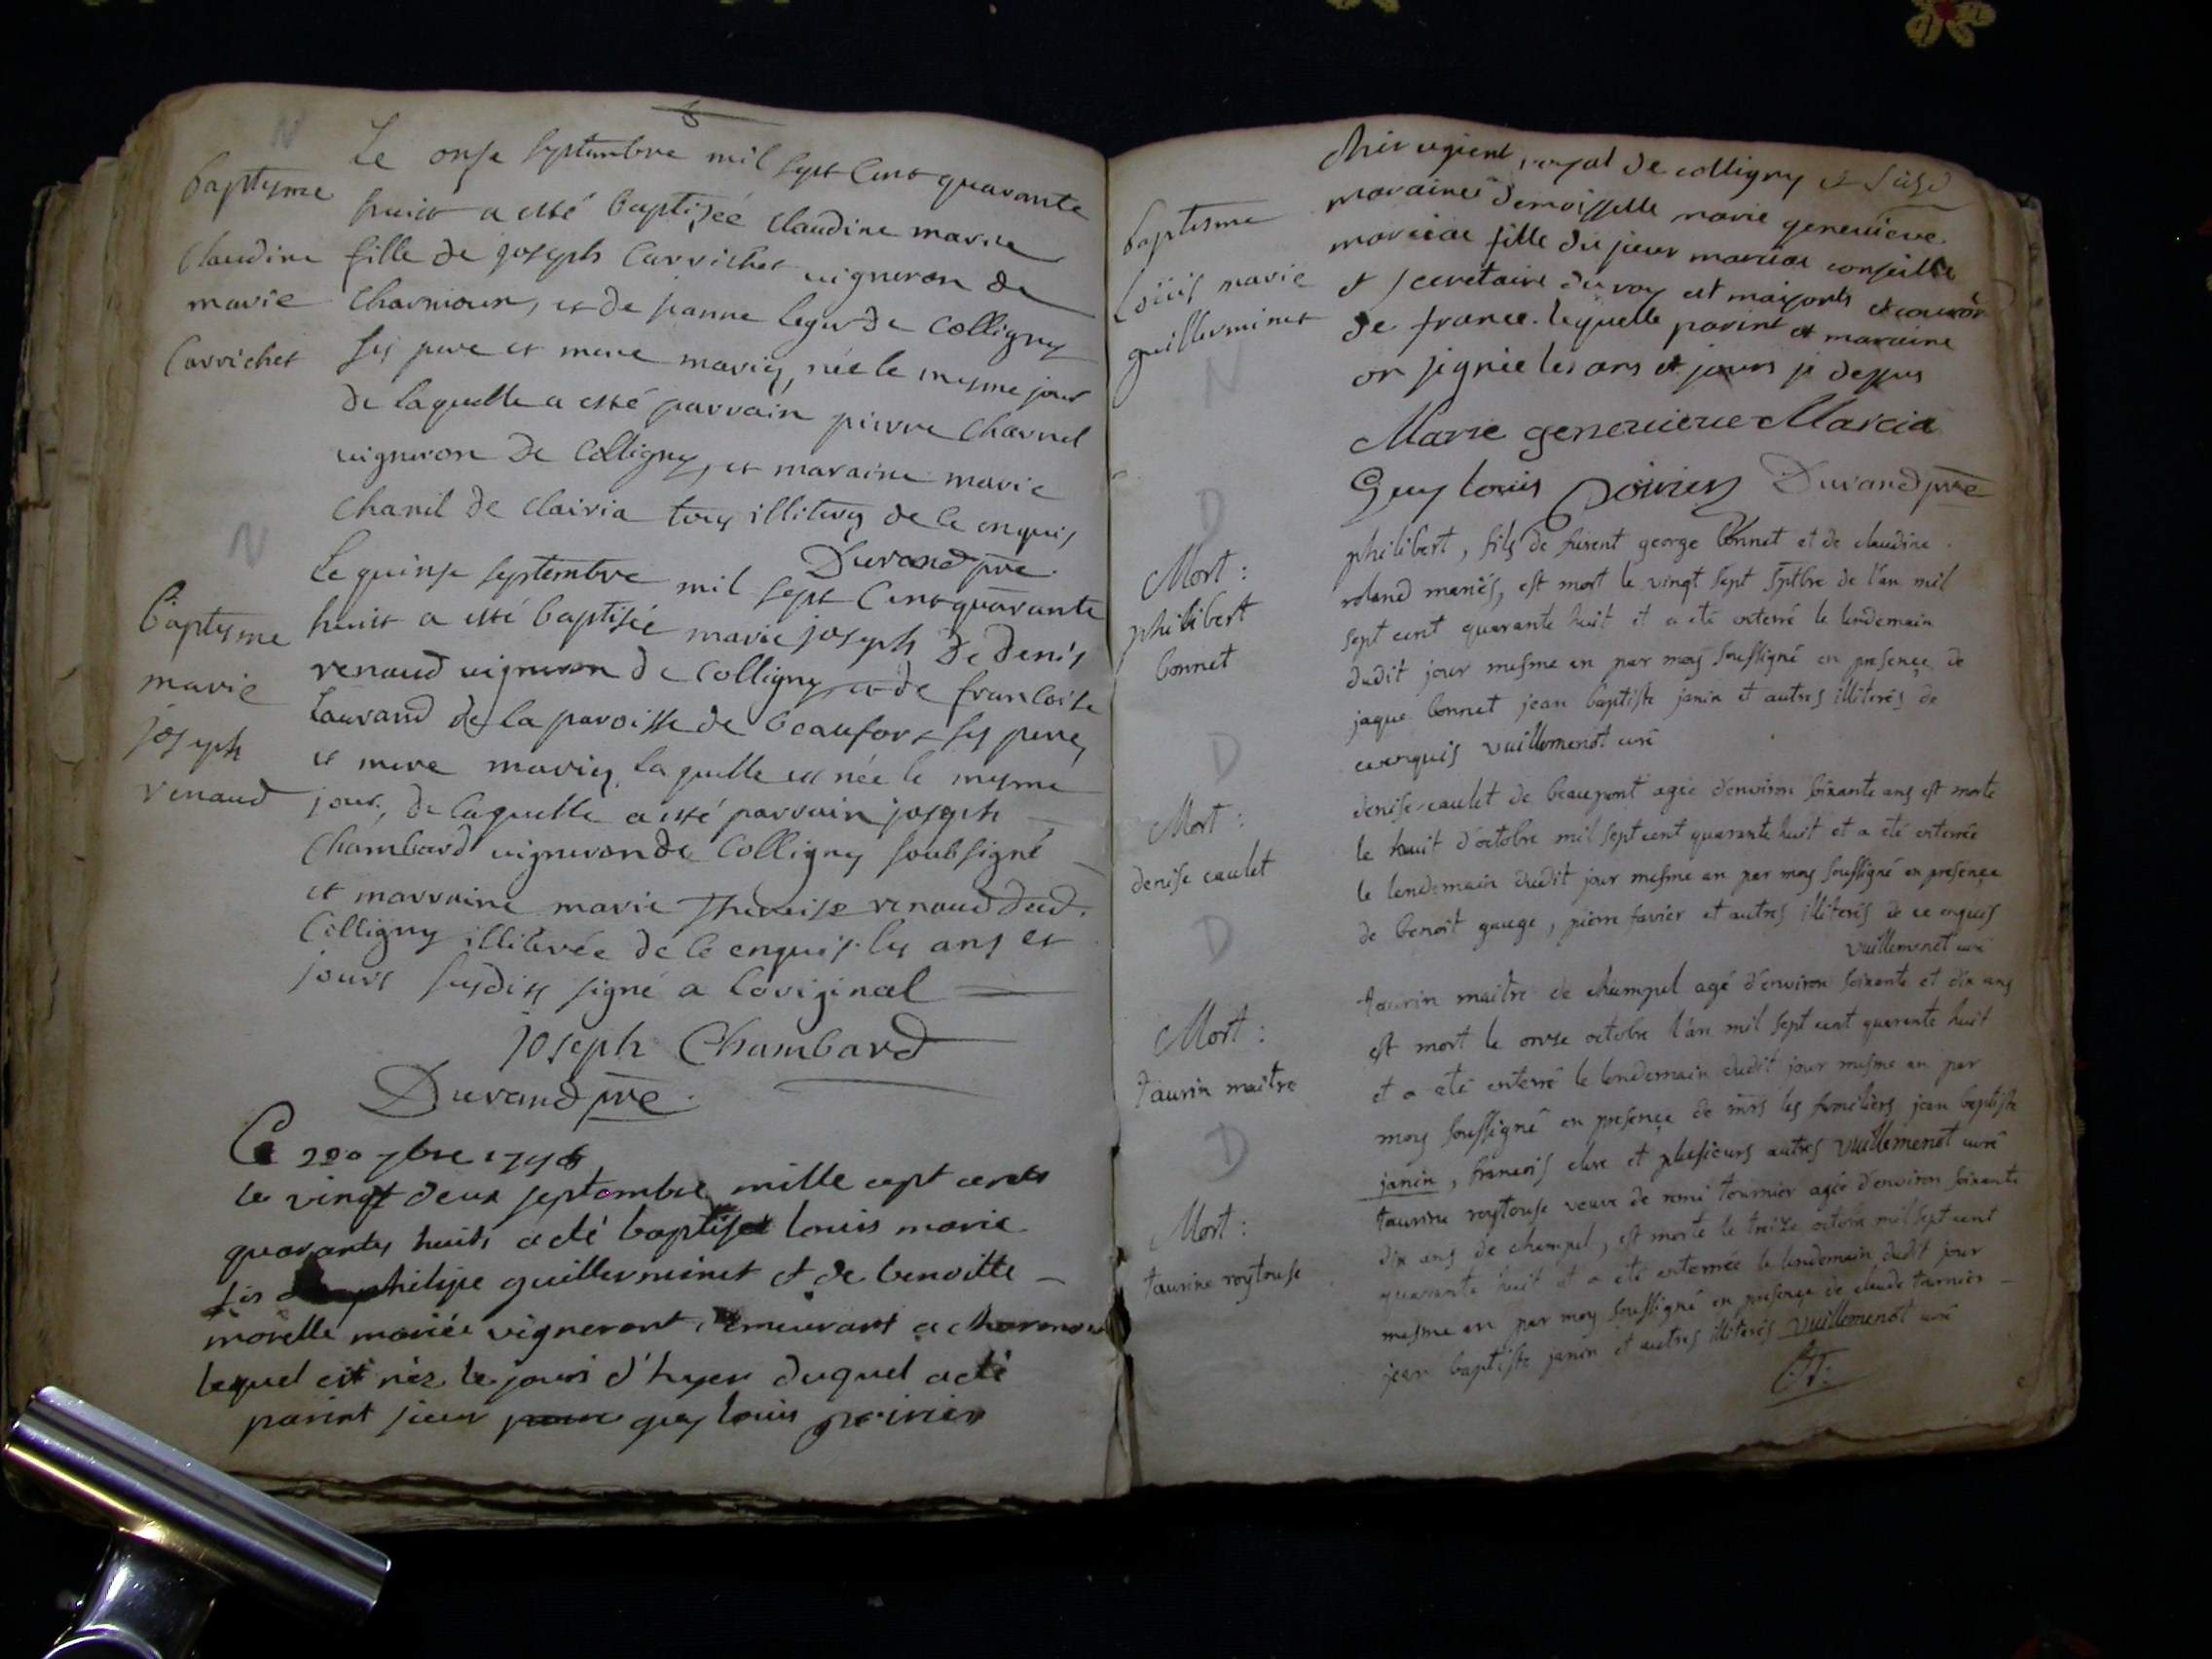 N
Baptesme
Claudine
marie
Carrichet
Le onse septembre mil sept cent quarante
huict a esté baptiséé claudine marie
fille de joseph Carrichet vigneron de
Charmoux, et de jeanne leger de Colligny
ses pere et mere mariés, née le mesme jour
de laquelle a esté parrain pierre Charnel
vigneron de Colligny, et maraine marie
chanel de clairia tous illiterés de ce enquis
Durand pre
N
Baptesme
marie
joseph
renaud
Le quinse septembre mil sept Cent quarante
huict a esté baptisée marie joseph de denis
renaud vigneron de Colligny et de francoise
de la paroisse de beaufort ses pere
et mere mariés, laquelle est née le mesme
jour, de laquelle a esté parrain joseph
Chambard vigneron de Colligny soubsigné
et marraine marie Therese renaud dud.
Colligny illiterée de ce enquis les ans et
jours susdits signé a l'original
joseph Chambard
Durand pre
Ce 22e 7bre 1748
le vingt deux septembre mille cept cents
quarantes huits a eté baptisé louis marie
fis philipe guillerminet et de benoitte
morelle mariée vigneront demeurant a
lequel est néz le jours d'hyer duquel a eté
parint sieur guy louis poirier
Baptesme
Loüis marie
guillerminet
N
royal de colligny et
maraine demoisselle marie genevieve
marciat fille du sieur marciat conseille
et secretaire du roy et maisont et
de france. lequelle parint et maraine
on signée les ans et jours si dessus
Marie genevieve Marcia
Guy louis Poirier Durand pre
D
Mort :
philibert
bonnet
philibert, fils de furent george bonnet et de claudine
roland mariés, est mort le vingt sept sptbre de l'an mil
sept cent quarante huit et a eté enterré le lendemain
dudit jour mesme an par moy soussigné en presençe de
jaque bonnet jean baptiste janin et autres illiterés de
ce enquis vuillemenot curé
D
Mort :
denise caulet
denise caulet de beaupont agée d'environ soixante ans est morte
le huit d'octobre mil sept cent quarante huit et a eté enterrée
le lendemain dudit jour mesme an par moy soussigné en presençe
de benoit gauge, pierre favier et autres illiterés de ce enquis
vuillemenot curé
D
Mort :
taurin maitre
taurin maitre de champel agé d'environ soixante et dix ans
est mort le onze octobre l'an mil sept cent quarante huit
et a eté enterré le lendemain dudit jour mesme an par
moy soussigné en presençe de mrs les familiers jean baptiste
janin, francois clere et plusieurs autres vuillemenot curé
D
Mort :
taurine roytouse
taurine roytouse veuve de remi tournier agée d'environ soixante
dix ans de champel, est morte le treize octobre mil sept cent
quarante huit et a eté enterrée le lendemain dudit jour
mesme an par moy soussigné en presençe de claude tournier
jean baptiste janin et autres illiterés vuillemenot curé